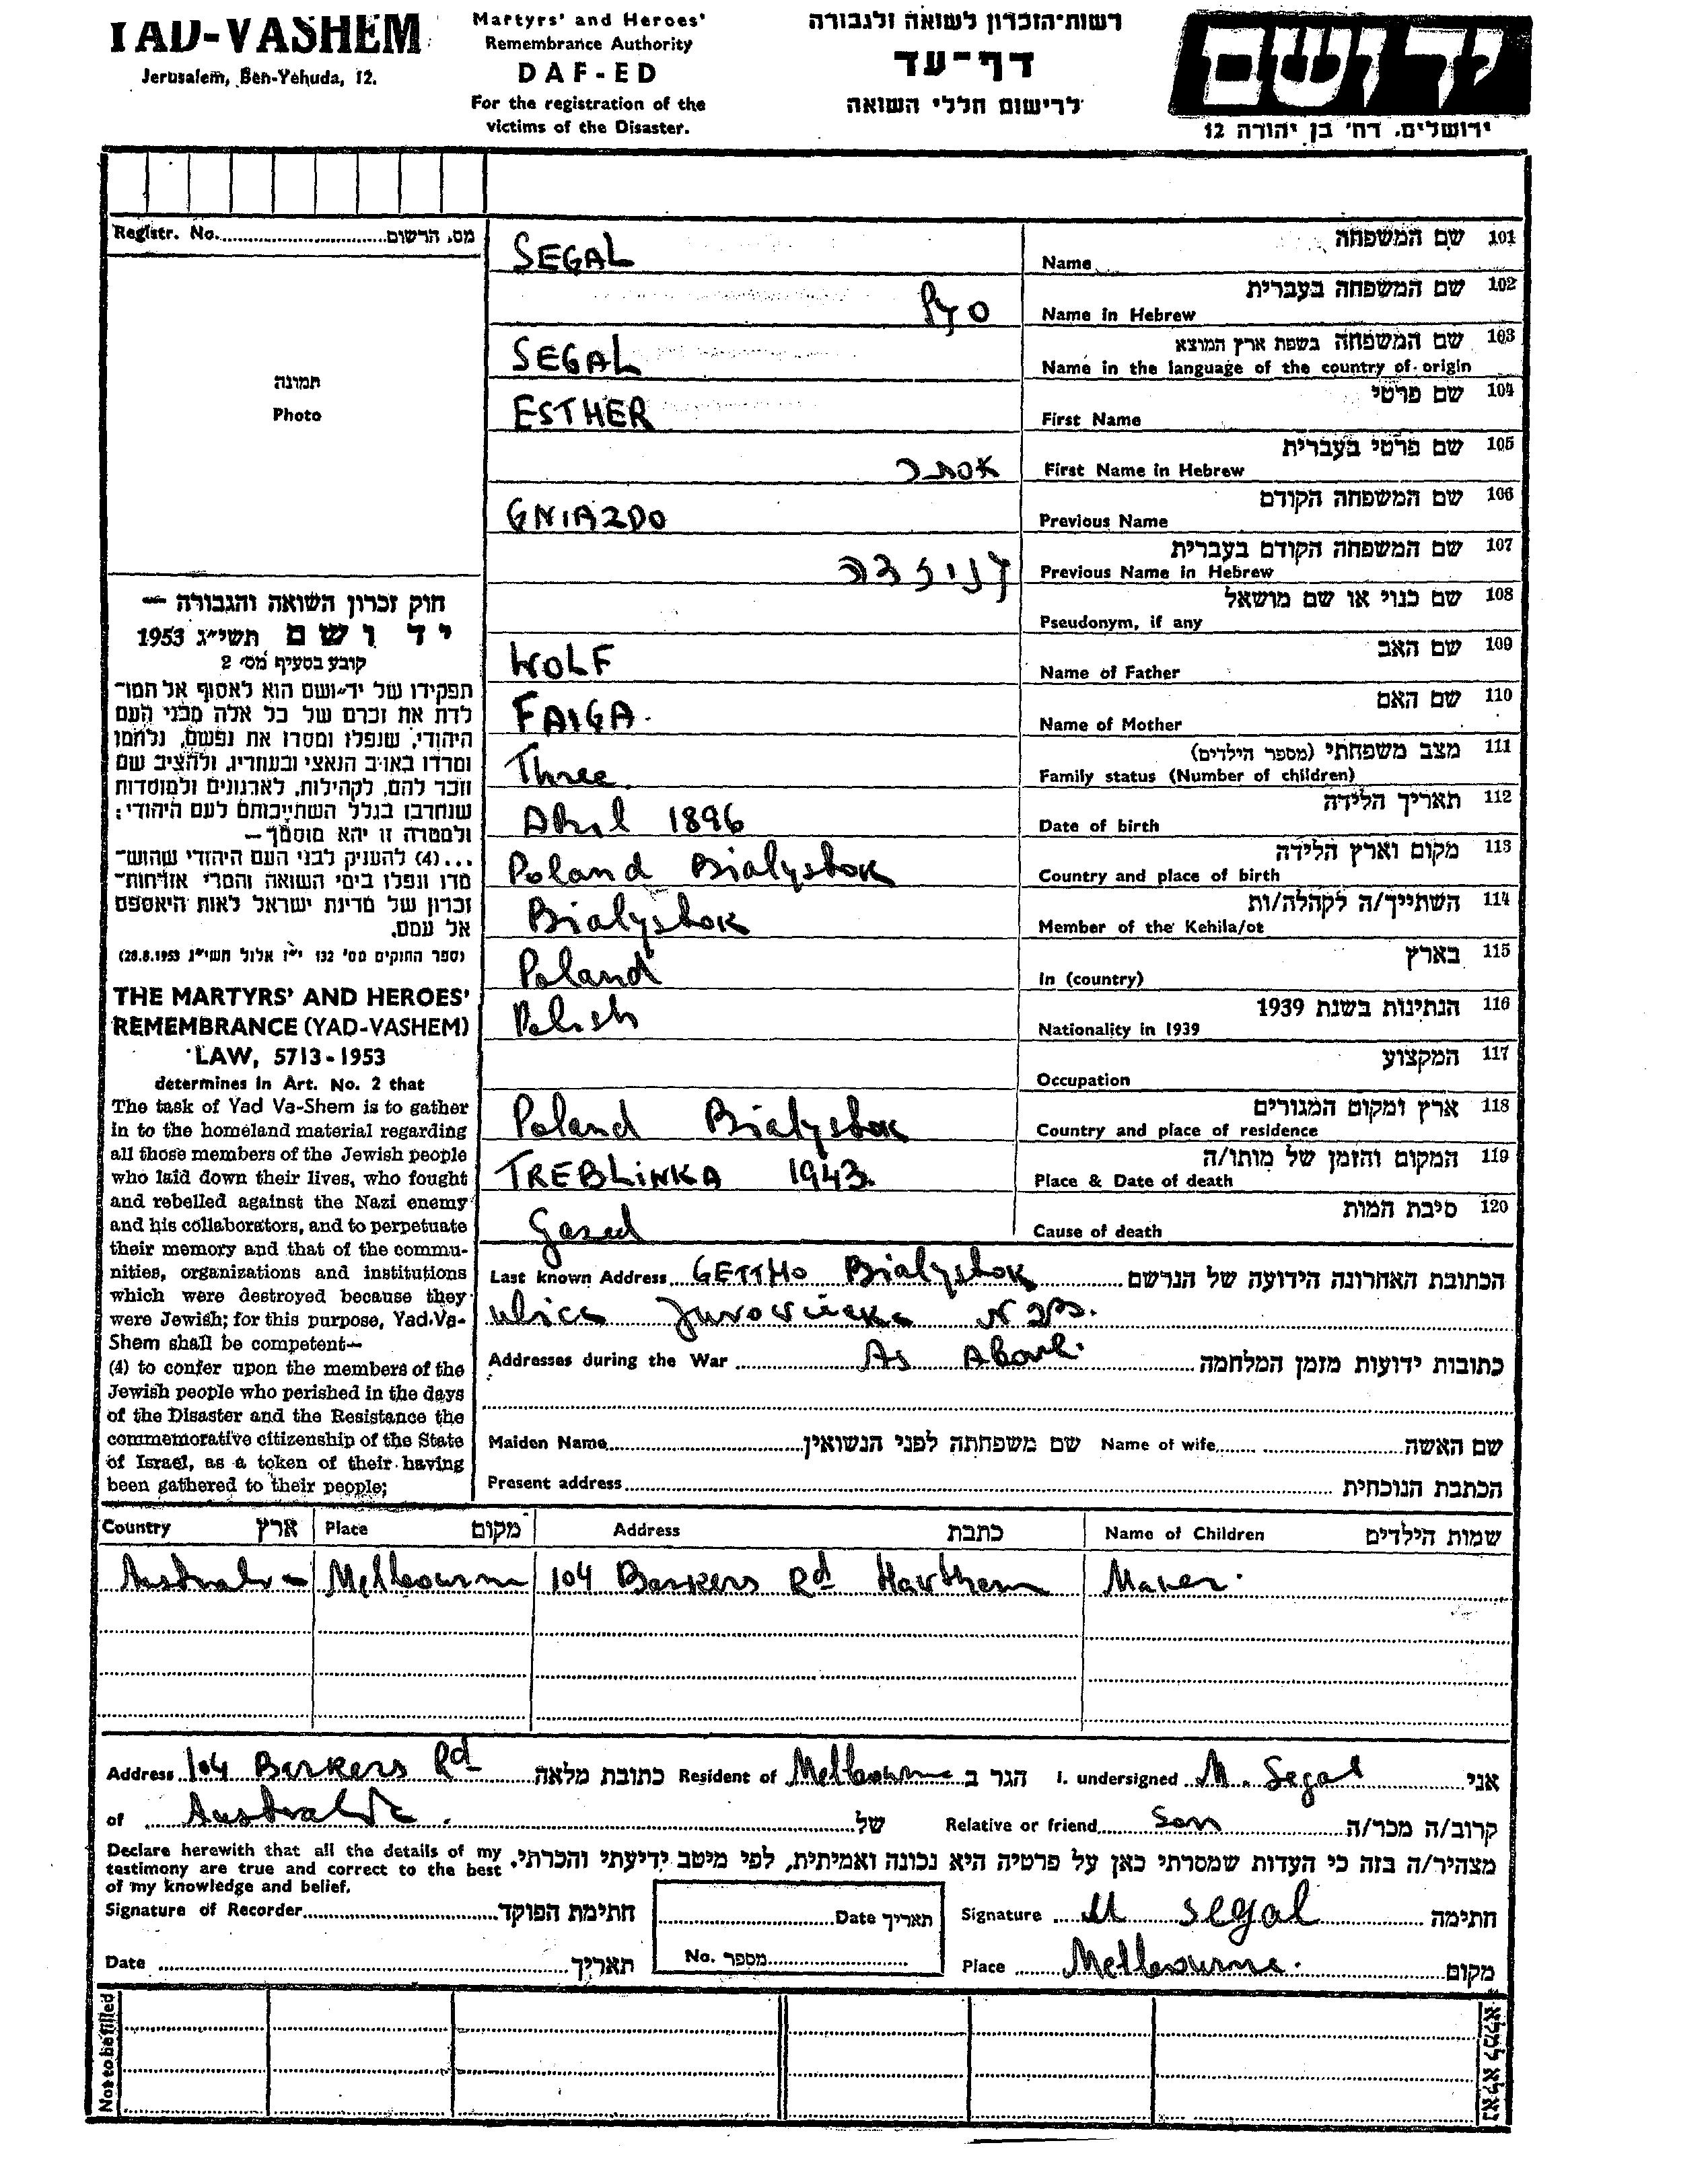 YAD-VASHEM
Jerusalem, Ben-Yehuda, 12.
Martyrs' and Heroes'
Remembrance Authority
DAF-ED
For the registration of the
victims of the Disaster.
רשות־הזכרון לשואה ולגבורה
דף־עד
לרישום חללי השואה
יד ושם
ירושלים, רח' בן יהודה 12
Registr. No. מס. הרשום
תמונה
Photo
חוק זכרון השואה והגבורה —
יד ושם תשי״ג 1953
קובע בסעיף מס' 2
תפקידו של יד־ושם הוא לאסוף אל המו־
לדת את זכרם של כל אלה מבני העם
היהודי, שנפלו ומסרו את נפשם, נלחמו
ומרדו באויב הנאצי ובעוזריו, ולהציב שם
וזכר להם, לקהילות, לארגונים ולמוסדות
שנחרבו בגלל השתייכותם לעם היהודי;
ולמטרה זו יהא מוסמך—
...(4) להעניק לבני העם היהודי שהוש־
מדו ונפלו בימי השואה והמרי אזרחות־
זכרון של מדינת ישראל לאות היאספם
אל עמם.
(ספר החוקים מס' 132 י״ז אלול תשי״ג 28.8.1953)
THE MARTYRS' AND HEROES'
REMEMBRANCE (YAD-VASHEM)
LAW, 5713-1953
determines in Art. No. 2 that
The task of Yad Va-Shem is to gather
in to the homeland material regarding
all those members of the Jewish people
who laid down their lives, who fought
and rebelled against the Nazi enemy
and his collaborators, and to perpetuate
their memory and that of the commu-
nities, organizations and institutions
which were destroyed because they
were Jewish; for this purpose, Yad-Va-
Shem shall be competent—
(4) to confer upon the members of the
Jewish people who perished in the days
of the Disaster and the Resistance the
commemorative citizenship of the State
of Israel, as a token of their having
been gathered to their people;
SEGAL Name שם המשפחה 101
סגל Name in Hebrew שם המשפחה בעברית 102
SEGAL Name in the language of the country of origin שם המשפחה בשפת ארץ המוצא 103
ESTHER First Name שם פרטי 104
אסתר First Name in Hebrew שם פרטי בעברית 105
GNIAZDO Previous Name שם המשפחה הקודם 106
גניזדה Previous Name in Hebrew שם המשפחה הקודם בעברית 107
Pseudonym, if any שם כנוי או שם מושאל 108
WOLF Name of Father שם האב 109
FAIGA. Name of Mother שם האם 110
Three. Family status (Number of children) מצב משפחתי (מספר הילדים) 111
April 1896 Date of birth תאריך הלידה 112
Poland Bialystok Country and place of birth מקום וארץ הלידה 113
Bialystok Member of the Kehila/ot השתייך/ה לקהלה/ות 114
Poland In (country) בארץ 115
Polish Nationality in 1939 הנתינות בשנת 1939 116
Occupation המקצוע 117
Poland Bialystok Country and place of residence ארץ ומקום המגורים 118
TREBLINKA 1943. Place & Date of death המקום והזמן של מותו/ה 119
Gased Cause of death סיבת המות 120
Last known Address GETTHO Bialystok הכתובת האחרונה הידועה של הנרשם
ulica Jurowiecka N
Addresses during the War As Above. כתובות ידועות מזמן המלחמה
Maiden Name שם משפחתה לפני הנשואין Name of wife שם האשה
Present address הכתבת הנוכחית
Country ארץ Place מקום Address כתבת Name of Children שמות הילדים
Australia Melbourne 104 Barkers Rd Hawthorn
Address 104 Barkers Rd כתובת מלאה Resident of Melbourne הגר ב I. undersigned M. Segal אני
of Australia. של Relative or friend Son קרוב/ה מכר/ה
Declare herewith that all the details of my
testimony are true and correct to the best
of my knowledge and belief.
מצהיר/ה בזה כי העדות שמסרתי כאן על פרטיה היא נכונה ואמיתית, לפי מיטב ידיעתי והכרתי.
Signature of Recorder חתימת הפוקד Date תאריך Signature M segal חתימה
Date תאריך No. מספר Place Melbourne. מקום
Not to be filled
נא לא למלא